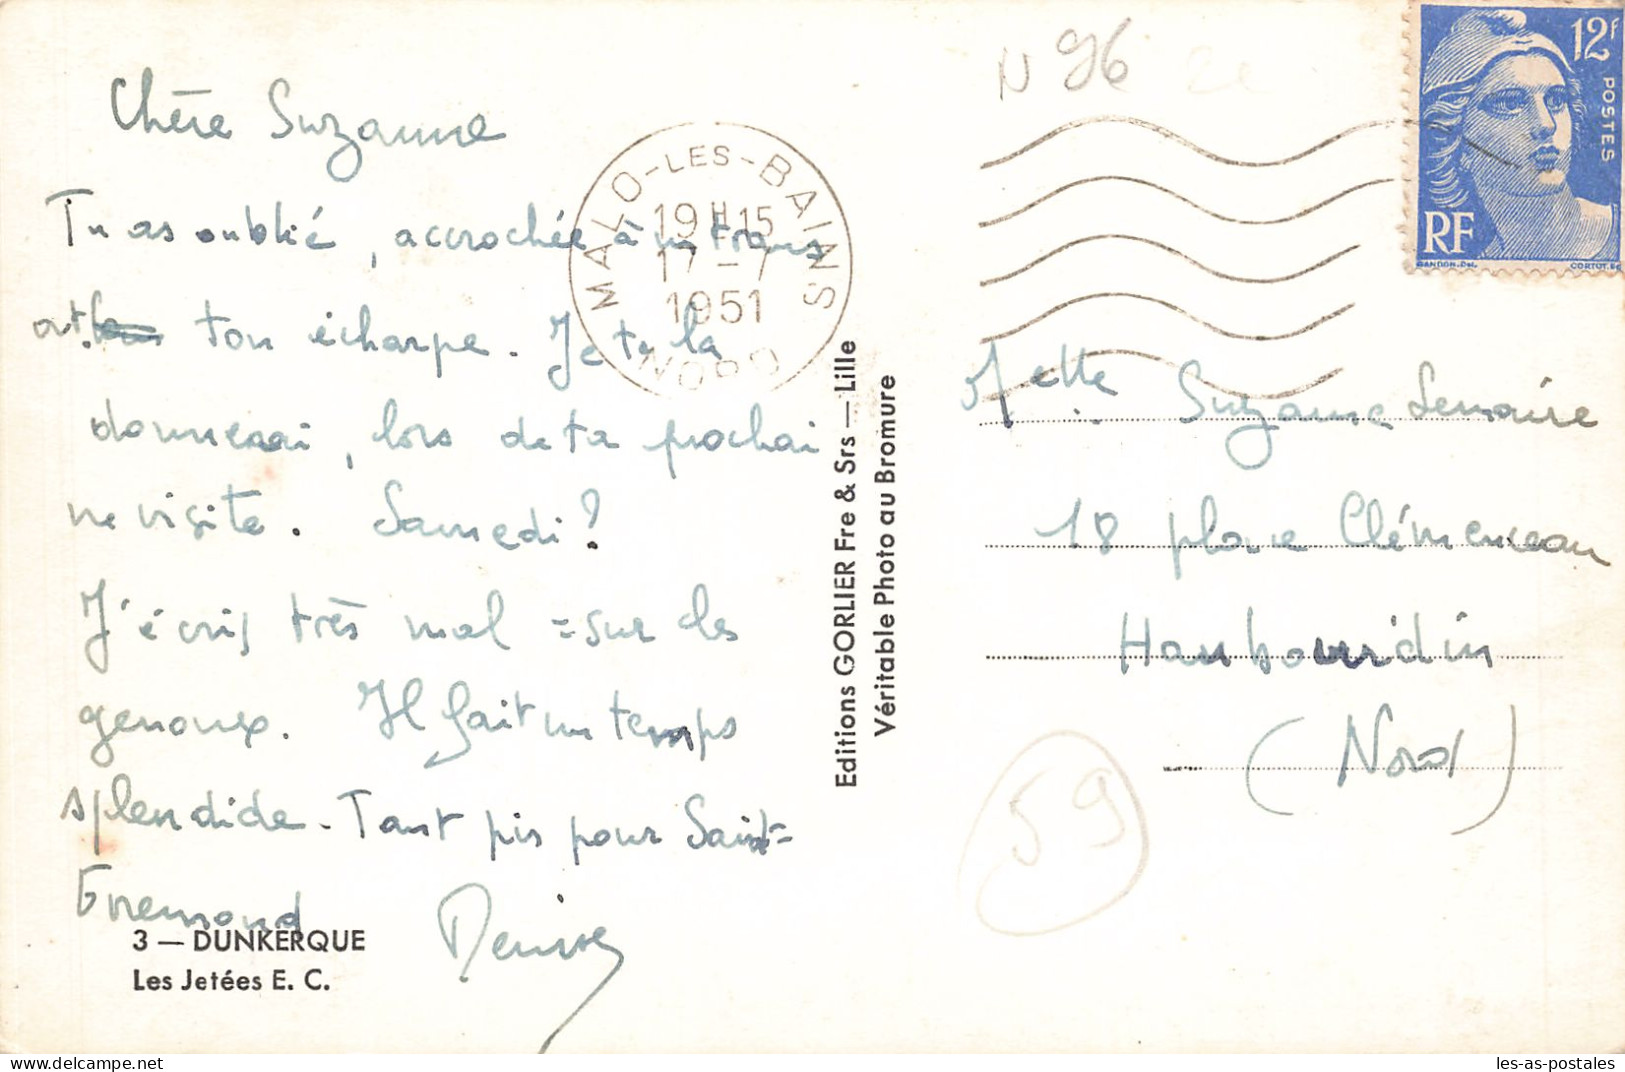 Chère Suzanne
Tu as oublié, accrochée à un trans
at. ton écharpe. Je te la
donnerai, lors de ta prochai
ne visite. Samedi ?
J'écris très mal = sur les
genoux. Il fait un temps
splendide - Tant pis pour Saint-
Evremond
Denise
3 — DUNKERQUE
Les Jetées E. C.
MALO-LES-BAINS
19 H 15
17 - 7
1951
NORD
Editions GORLIER Fre & Srs — Lille
Véritable Photo au Bromure
N 96
12F
POSTES
RF
GANDON.Del.
CORTOT.Sc
Melle Suzanne Lemaire
18 place Clémenceau
Haubourdin
(Nord)
59
Fabrication Française
les-as-postales